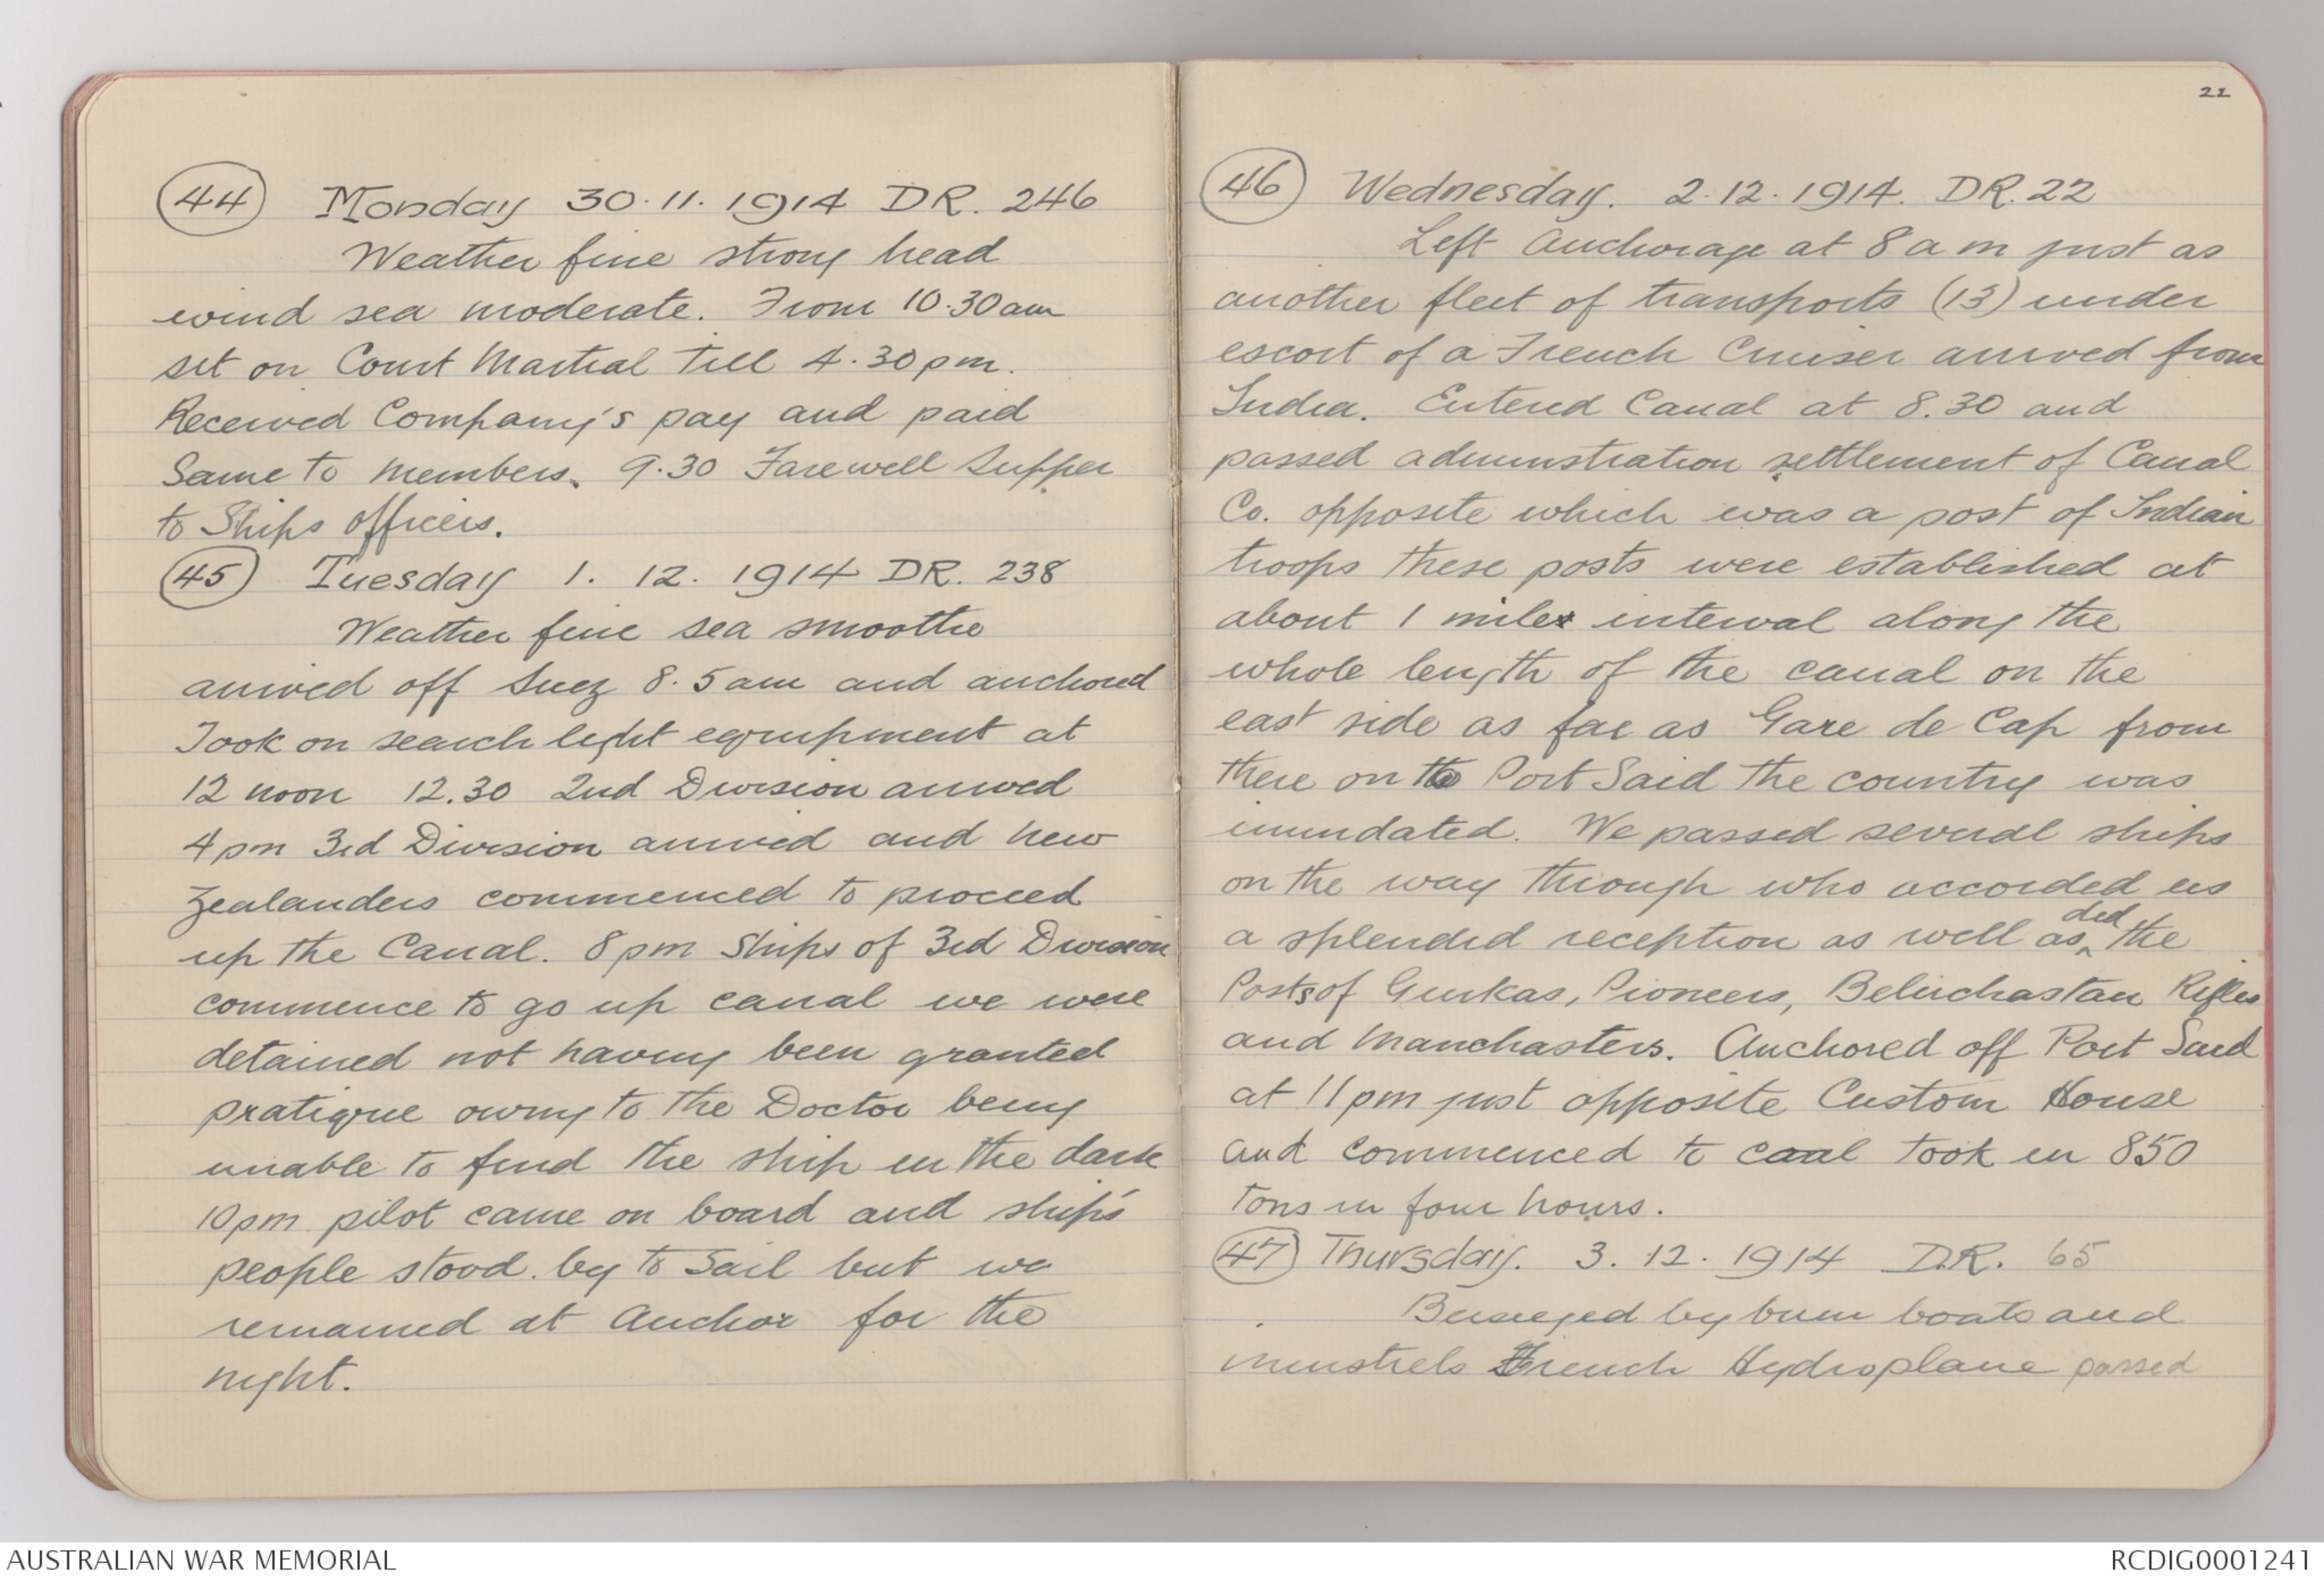 44 Monday 30.11.1914 DR. 246
Weather fine strong head
wind sea moderate. From 10.30am
set on Court Martial till 4.30pm.
Received Company's pay and paid
Same to members. 9.30 Farewell Supper
to Ships officers.
45 Tuesday 1. 12. 1914 DR. 238
Weather fine sea smoothe
arrived off Suez 8.5am and anchored
Took on search light equipment at
12 noon 12.30 2nd Division arrived
4pm 3rd Division arrived and New
Zealanders commenced to proceed
up the Canal. 8pm Ships of 3rd Division
commence to go up canal we were
detained not having been granted
pratique owing to the Doctor being
unable to find the ship in the dark
10pm pilot came on board and ship's
people stood by to Sail but we
remained at Anchor for the
night.
22
46 Wednesday. 2.12.1914. DR. 22
Left Anchorage at 8 am just as
another fleet of transports (13) under
escort of a French Cruiser arrived from
India. Entered Canal at 8.30 and
passed administration settlement of Canal
Co. opposite which was a post of Indian
troops these posts were established at
about 1 mile interval along the
whole length of the canal on the
east side as far as Gare de Cap from
there on to Port Said the country was
inundated. We passed several ships
on the way through who accorded us
a splended reception as well as did the
Posts of Gurkas, Pioneers, Beluchastan Rifles
and Manchasters. Anchored off Port Said
at 11pm just opposite Custom House
and commenced to coal took in 850
tons in four hours.
47 Thursday. 3. 12. 1914 D.R. 65
Beseiged by bum boats and
minstrels French Hydroplane passed
AUSTRALIAN WAR MEMORIAL
RCDIG0001241